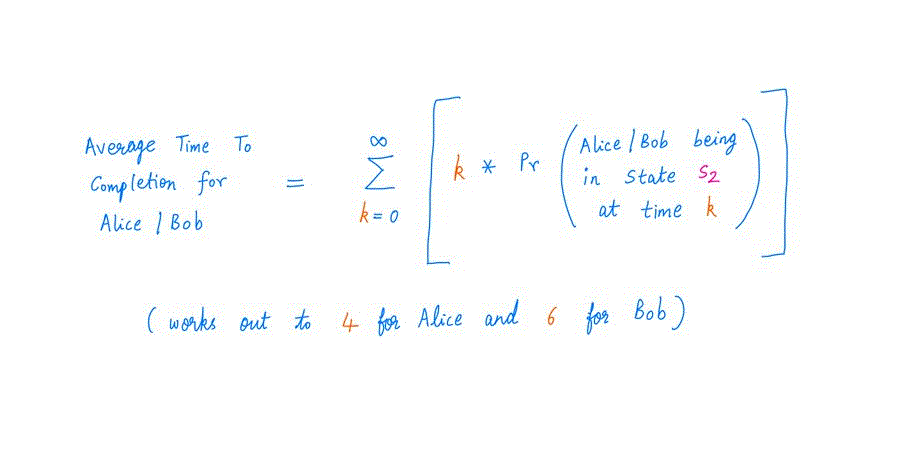 Average Time To
Completion for
Alice / Bob
=
∞
∑
k = 0
[ k * Pr (
Alice / Bob being
in State S2
at time k
) ]
( works out to 4 for Alice and 6 for Bob )